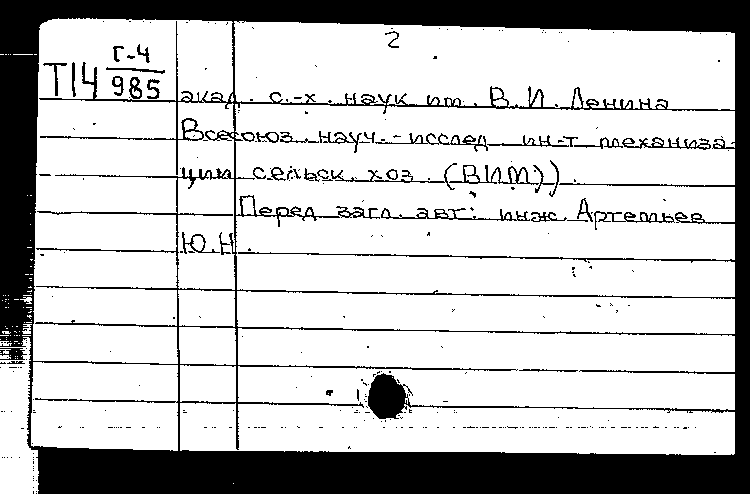 2
Т14 Г-4
985
акад. с.-х. наук им. В.И. Ленина
Всесоюз. науч.-исслед. ин-т механиза-
ции сельск. хоз. (ВИМ)).
Перед загл. авт: инж. Артемьев
Ю.Н.